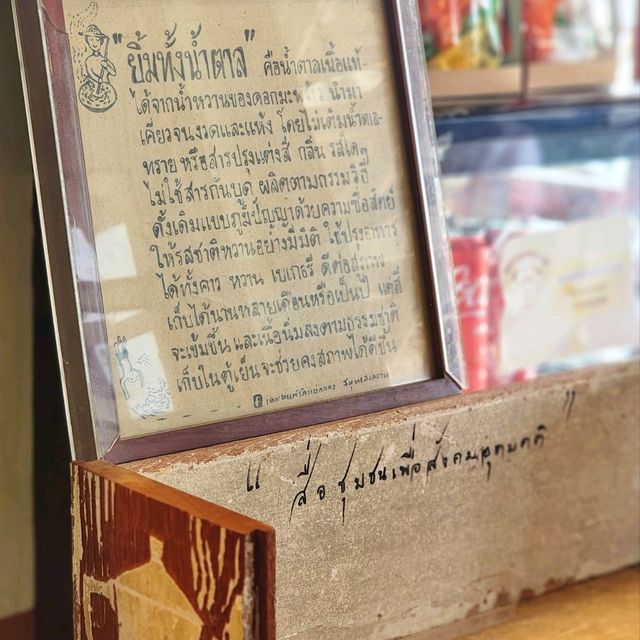 "ยิ้มทั้งน้ำตาล" คือน้ำตาลเนื้อแท้
ได้จากน้ำหวานของดอกมะพร้าว นำมา
เคี่ยวจนงวดและแห้ง โดยไม่เติมน้ำตาล
ทราย หรือสารปรุงแต่งสี กลิ่น รสใดๆ
ไม่ใช้สารกันบูด ผลิตตามกรรมวิธี
ดั้งเดิมแบบภูมิปัญญาด้วยความซื่อสัตย์
ให้รสชาติหวานอย่างมีมิติ ใช้ปรุงอาหาร
ได้ทั้งคาว หวาน เบเกอรี่ ดีต่อสุขภาพ
เก็บได้นานหลายเดือนหรือเป็นปี แต่สี
จะเข้มขึ้น และเนื้อนิ่มลงตามธรรมชาติ
เก็บในตู้เย็นจะช่วยคงสภาพได้ดีขึ้น
สมุทรสงคราม
" สื่อชุมชนเพื่อสังคมอุดมคติ "